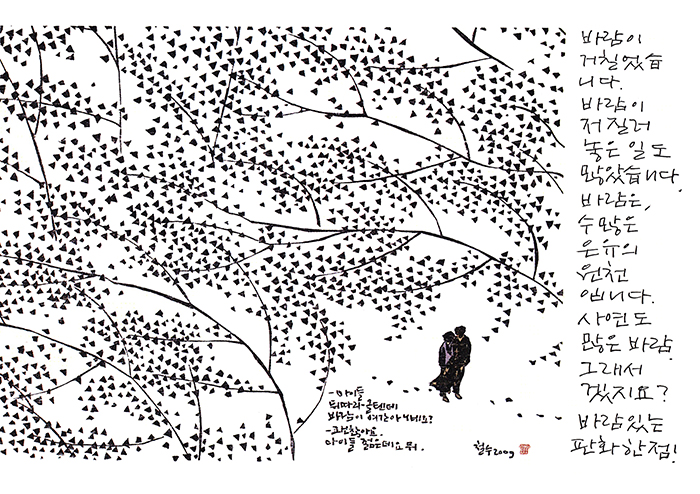 바람이
거칠었습
니다.
바람이
저질러
놓은 일도
많았습니다.
바람은,
수많은
은유의
원천
입니다.
사연도
많은 바람.
그래서
겠지요?
바람있는
판화한점!
-아이들
뒤따라올텐데
바람이 여간아니네요?
-괜찮아요.
아이들 젊은데요 뭐.
철수2009